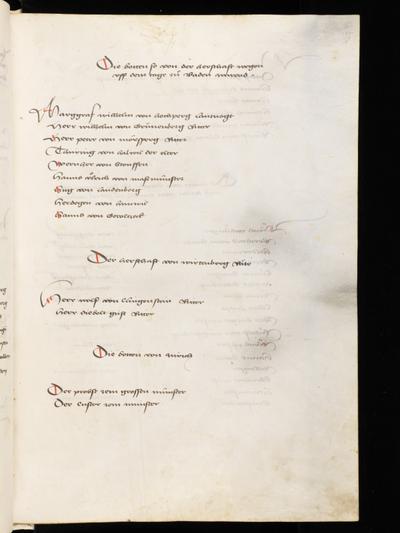 Die botten so von der herschaft wegen
vff dem tage zů Baden warend
Marggraf wilhelm von hochperg lantuogt
Herr wilhelm von Grünenberg Ritter
Herr peter von mörsperg Ritter
Türing von halwil der elter
Wernher von Stouffen
Hanns vͦlrich von masmünster
Hug von Landenberg
Herdegen von
Hanns von
Der herschaft von wirtenberg Räte
Herr wolf von
Herr Ritter
Die botten von zürich
Der probst zem grossen münster
Der Custer zem münster